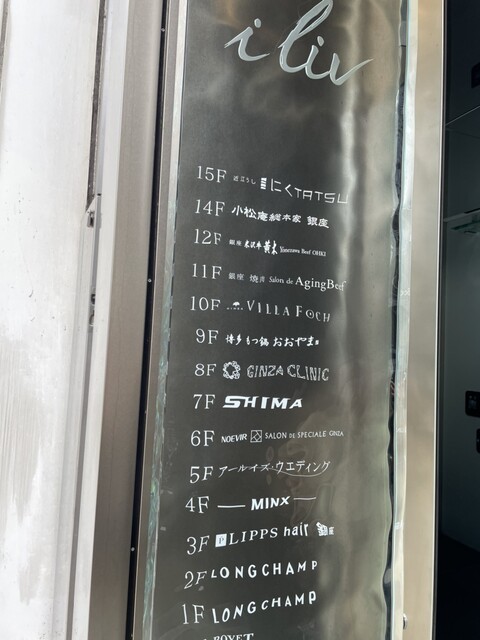 iliv
15F 近江うし にくTATSU
14F 小松庵総本家 銀座
12F 銀座 米沢牛 黄木 Yonezawa Beef OHKI
11F 銀座 焼肉 Salon de AgingBeef
10F VILLA FOCH
9F 博多もつ鍋 おおやま
8F GINZA CLINIC
7F SHIMA
6F NOEVIR SALON DE SPECIALE GINZA
5F アールイズ・ウエディング
4F MINX
3F LIPPS hair 銀座
2F LONGCHAMP
1F LONGCHAMP
BOVET